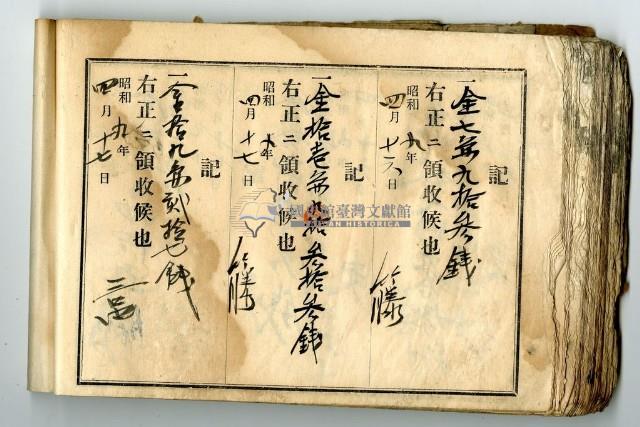 記
一金七円九拾参銭
右正ニ領收候也
昭和九年
四月十六日
記
一金拾壱円
右正ニ領收候也
昭和九年
四月十七日
記
一金拾九円貳拾七銭
右正ニ領收候也
昭和九年
四月十七日
國史館臺灣文獻館
TAIWAN HISTORICA